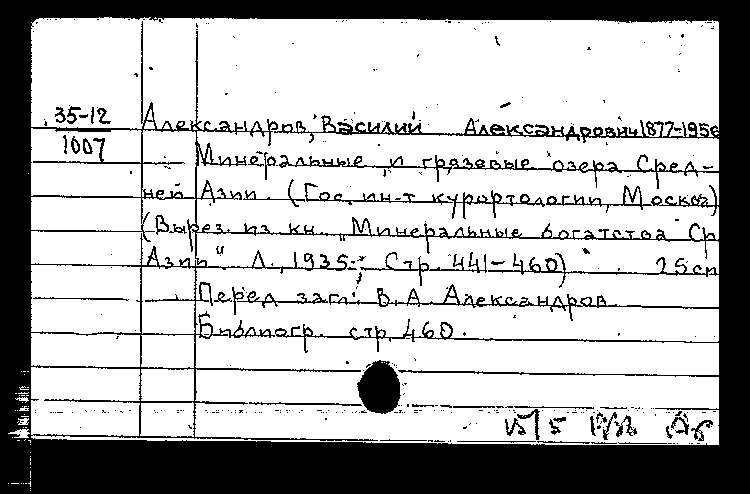 35-12
1007
Александров, Василий Александрович 1877-1956
Минеральные и грязевые озера Сред-
ней Азии. (Гос. ин-т курортологии, Москва)
(Вырез. из кн. „Минеральные богатства Ср
Азии“ Л., 1935. Стр. 441-460) 25см
Перед загл: В.А. Александров.
Библиогр. стр. 460.